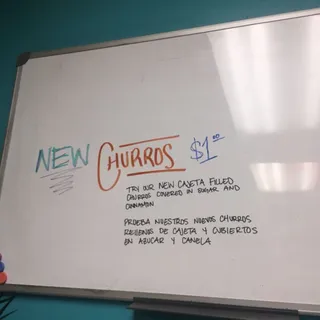 NEW CHURROS $1.00
TRY OUR NEW CAJETA FILLED
CHURROS COVERED IN SUGAR AND
CINNAMON
PRUEBA NUESTROS NUEVOS CHURROS
RELLENOS DE CAJETA Y CUBIERTOS
EN AZUCAR Y CANELA